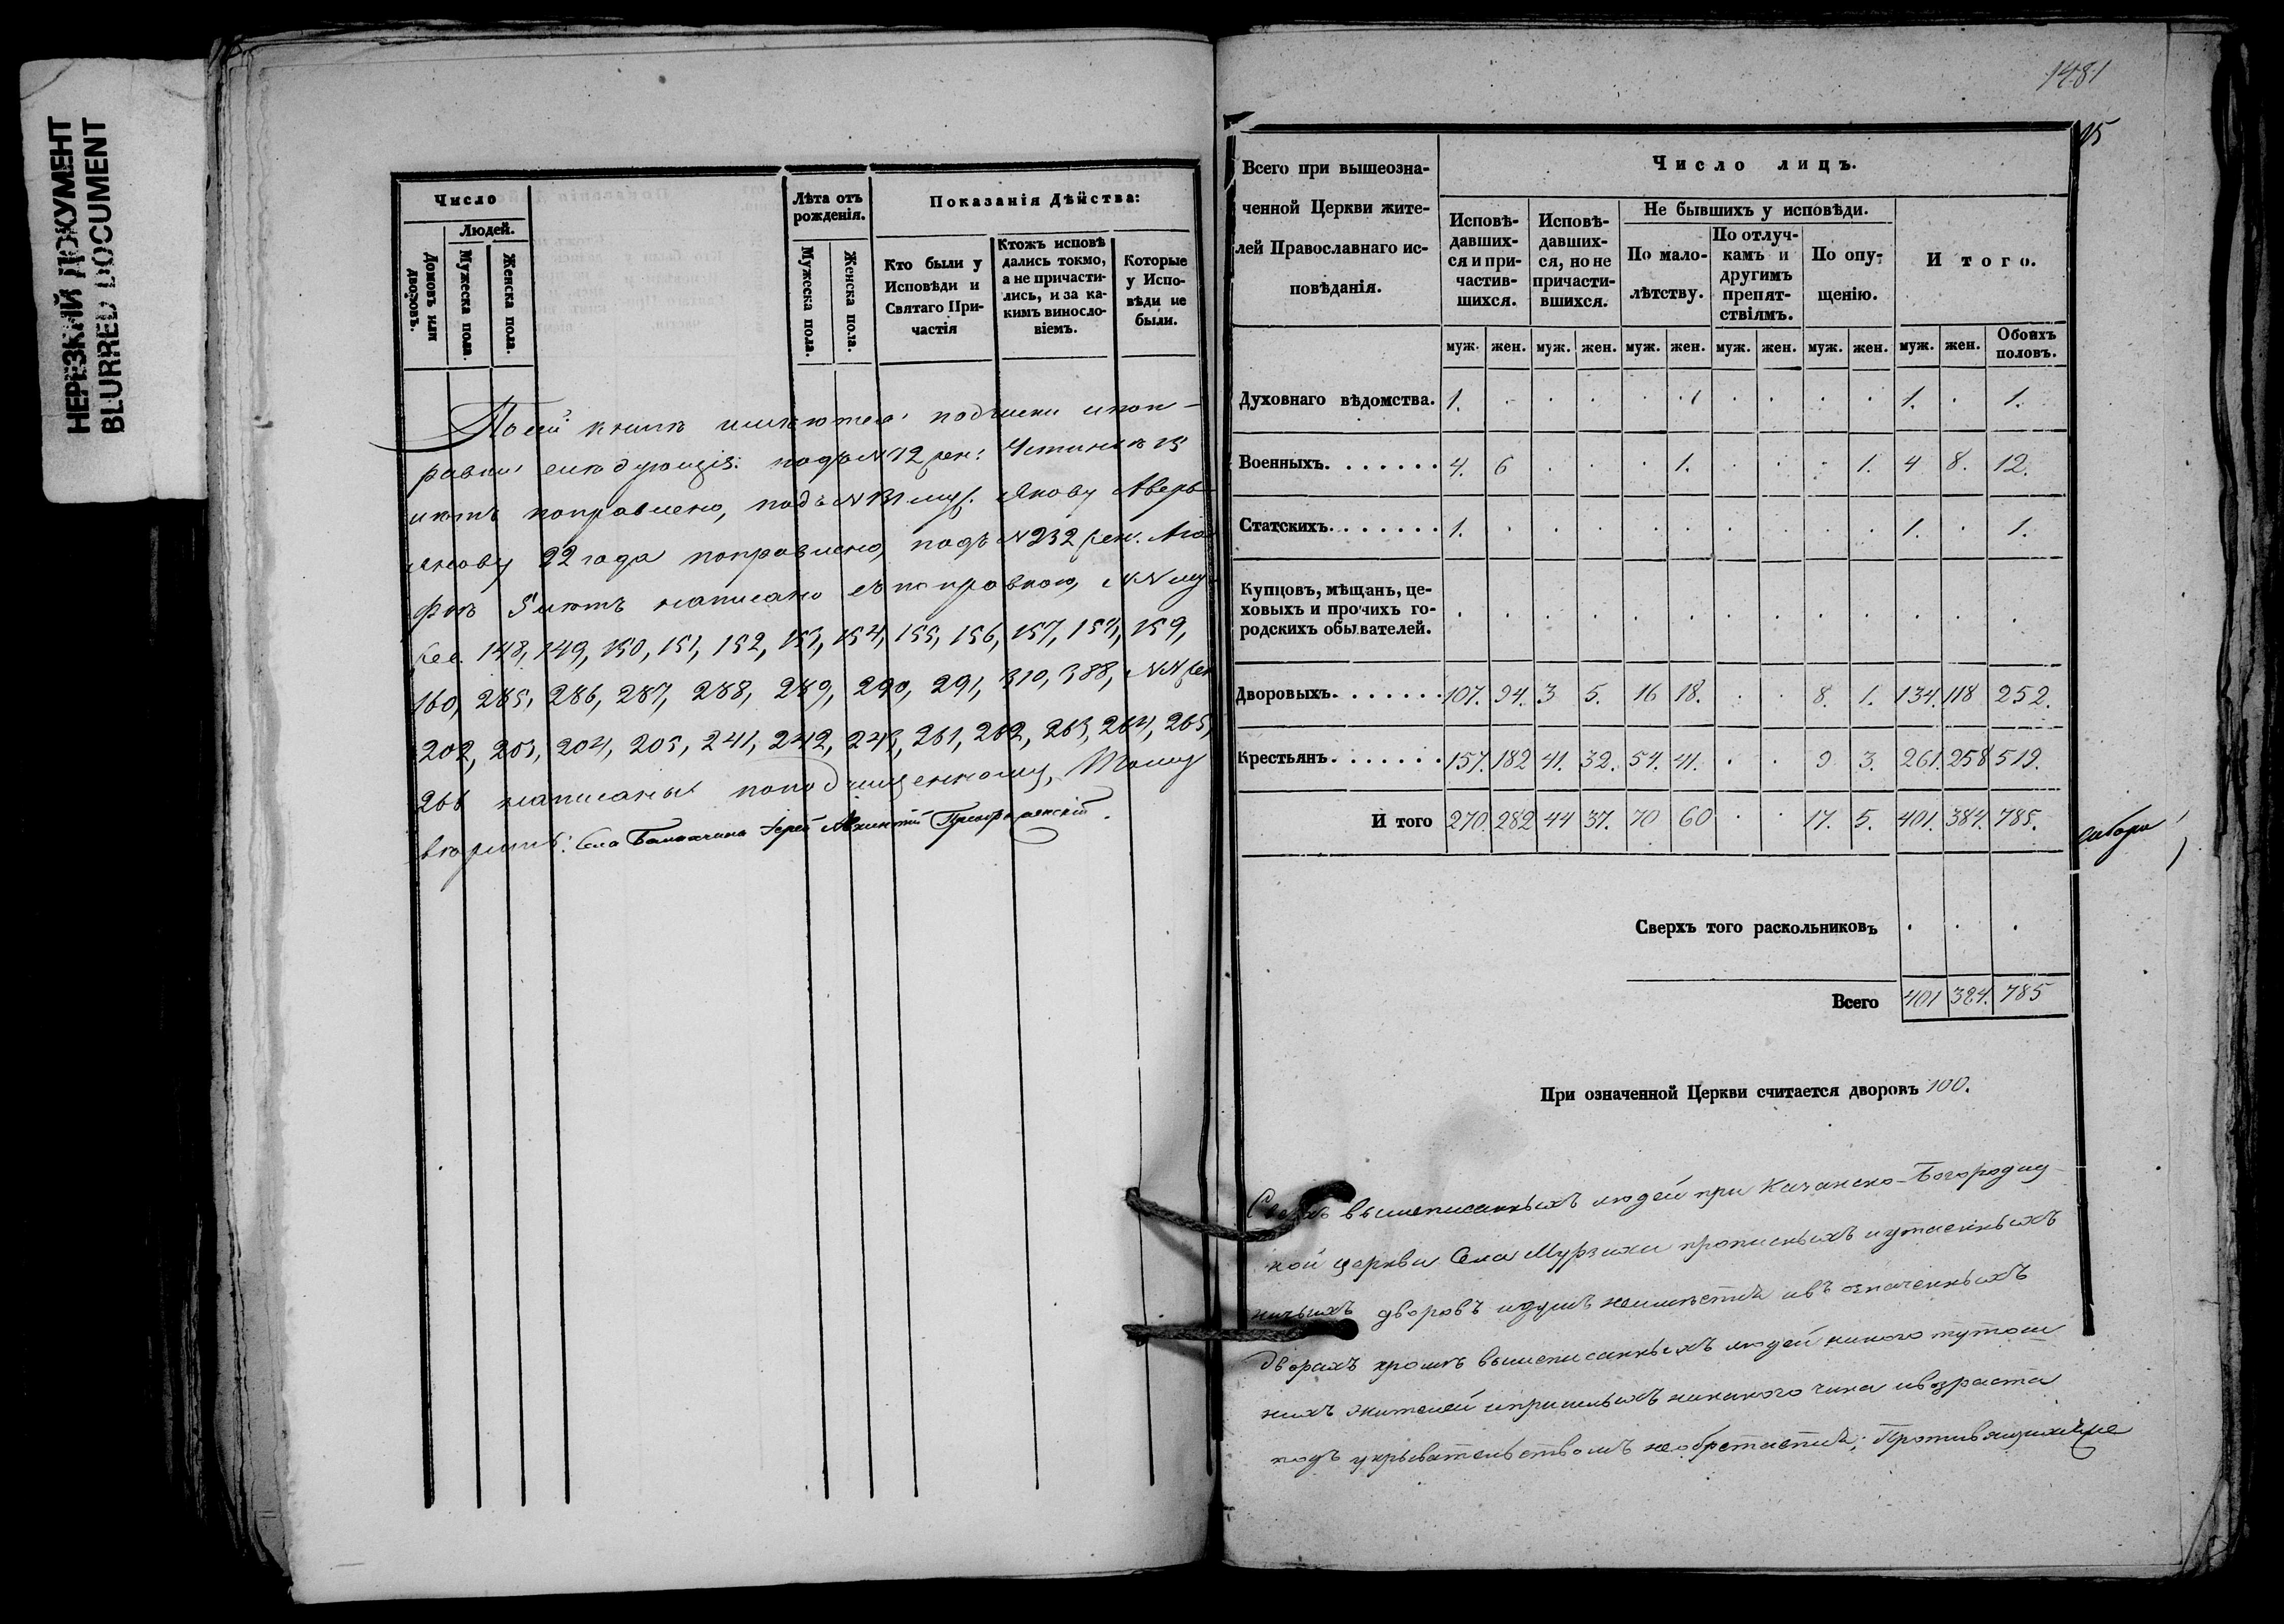 НЕРЕЗКИЙ ДОКУМЕНТ
BLURRED DOCUMENT
Число
Людей.
Домовъ или дворовъ.
Мужеска пола.
Женска пола.
Лѣта отъ рожденія.
Мужеска пола.
Женска пола.
Показанія Дѣйства:
Кто были у Исповѣди и Святаго Причастія
Ктожъ исповѣдались токмо, а не причастились, и за какимъ винословіемъ.
Которые у Исповѣди не были.
По сей книгѣ имѣются подчиски и поп-
равки слѣдующія: подъ N 12 жен: Устиньѣ 15
лѣтъ поправлено, подъ N 131 муж. Якову Аверь-
янову 22 года поправлено, подъ N 232 жен.
5 лѣтъ написано съ поправкою, NN му-
жес. 148, 149, 150, 151, 152, 153, 154, 155, 156, 157, 158, 159,
160, 285, 286, 287, 288, 289, 290, 291, 310, 388, NN жен
202, 203, 204, 205, 241, 242, 243, 261, 262, 263, 264, 265,
266 написаны по подчищенному,
Села Іерей Преображенскій.
1481
15
Всего при вышеозна-
ченной Церкви жите-
лей Православнаго ис-
повѣданія.
Число лицъ.
Исповѣ-давших-ся и при-частив-шихся.
Исповѣ-давших-ся, но не причасти-вшихся.
Не бывшихъ у исповѣди.
По мало-лѣтству.
По отлуч-камъ и другимъ препят-ствіямъ.
По опу-щенію.
Итого.
муж. жен. муж. жен. муж. жен. муж. жен. муж. жен. муж. жен. Обоихъ половъ.
Духовнаго вѣдомства. 1. . . . . . . . . . 1. . 1.
Военныхъ. 4. 6 . . . 1. . . . 1. 4 8. 12.
Статскихъ. 1. . . . . . . . . . 1. . 1.
Купцовъ, мѣщанъ, це-
ховыхъ и прочихъ го-
родскихъ обывателей. . . . . . . . . . . . . .
Дворовыхъ. 107. 94. 3 5. 16 18. . . 8. 1. 134. 118 252.
Крестьянъ. 157. 182 41. 32. 54. 41. . . 9 3. 261. 258 519.
И того 270. 282 44 37. 70 60 . . 17. 5. 401. 384. 785.
Сверхъ того раскольниковъ . . .
Всего 401 384. 785
При означенной Церкви считается дворовъ 100.
Сверхъ вышеписанныхъ людей при Казанско-Богородиц-
кой церкви Села Мурзихи прописныхъ и утаенныхъ
ничьихъ дворовъ и душъ неимѣется и въ означенныхъ
дворахъ кромѣ вышеписанныхъ людей никого тутош
нихъ жителей и пришлыхъ никакого чина и возраста
подъ укрывательствомъ необрѣтается;